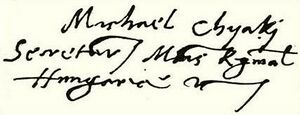 Michael Chyakj
Secretarj Mtis Regmal
Hungariae